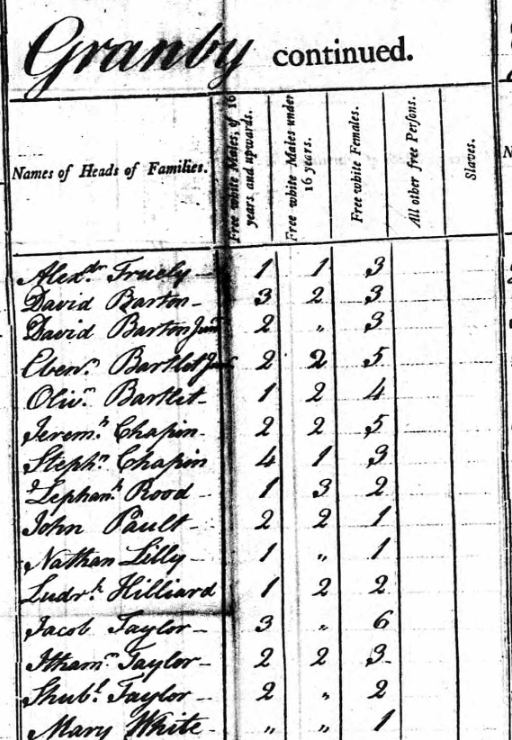 Granby continued.
Names of Heads of Families.
Free white Males, of 16 years and upwards.
Free white Males under 16 years.
Free white Females.
All other free Persons.
Slaves.
Alexdr 1 1 3
David Barton 3 2 3
David Barton Junr 2 " 3
Ebenr Bartlit Jr 2 2 5
Olivr Bartlit 1 2 4
Jeremh Chapin 2 2 5
Stephn Chapin 4 1 3
Rood 1 3 2
John Pault 2 2 1
Nathan Lilly 1 " 1
Hilliard 1 2 2
Jacob Taylor 3 " 6
Ithamr Taylor 2 2 3
Shubl Taylor 2 " 2
Mary White " " 1